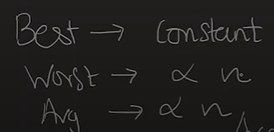 Best → Constant
Worst → ∝ n
Avg → ∝ n